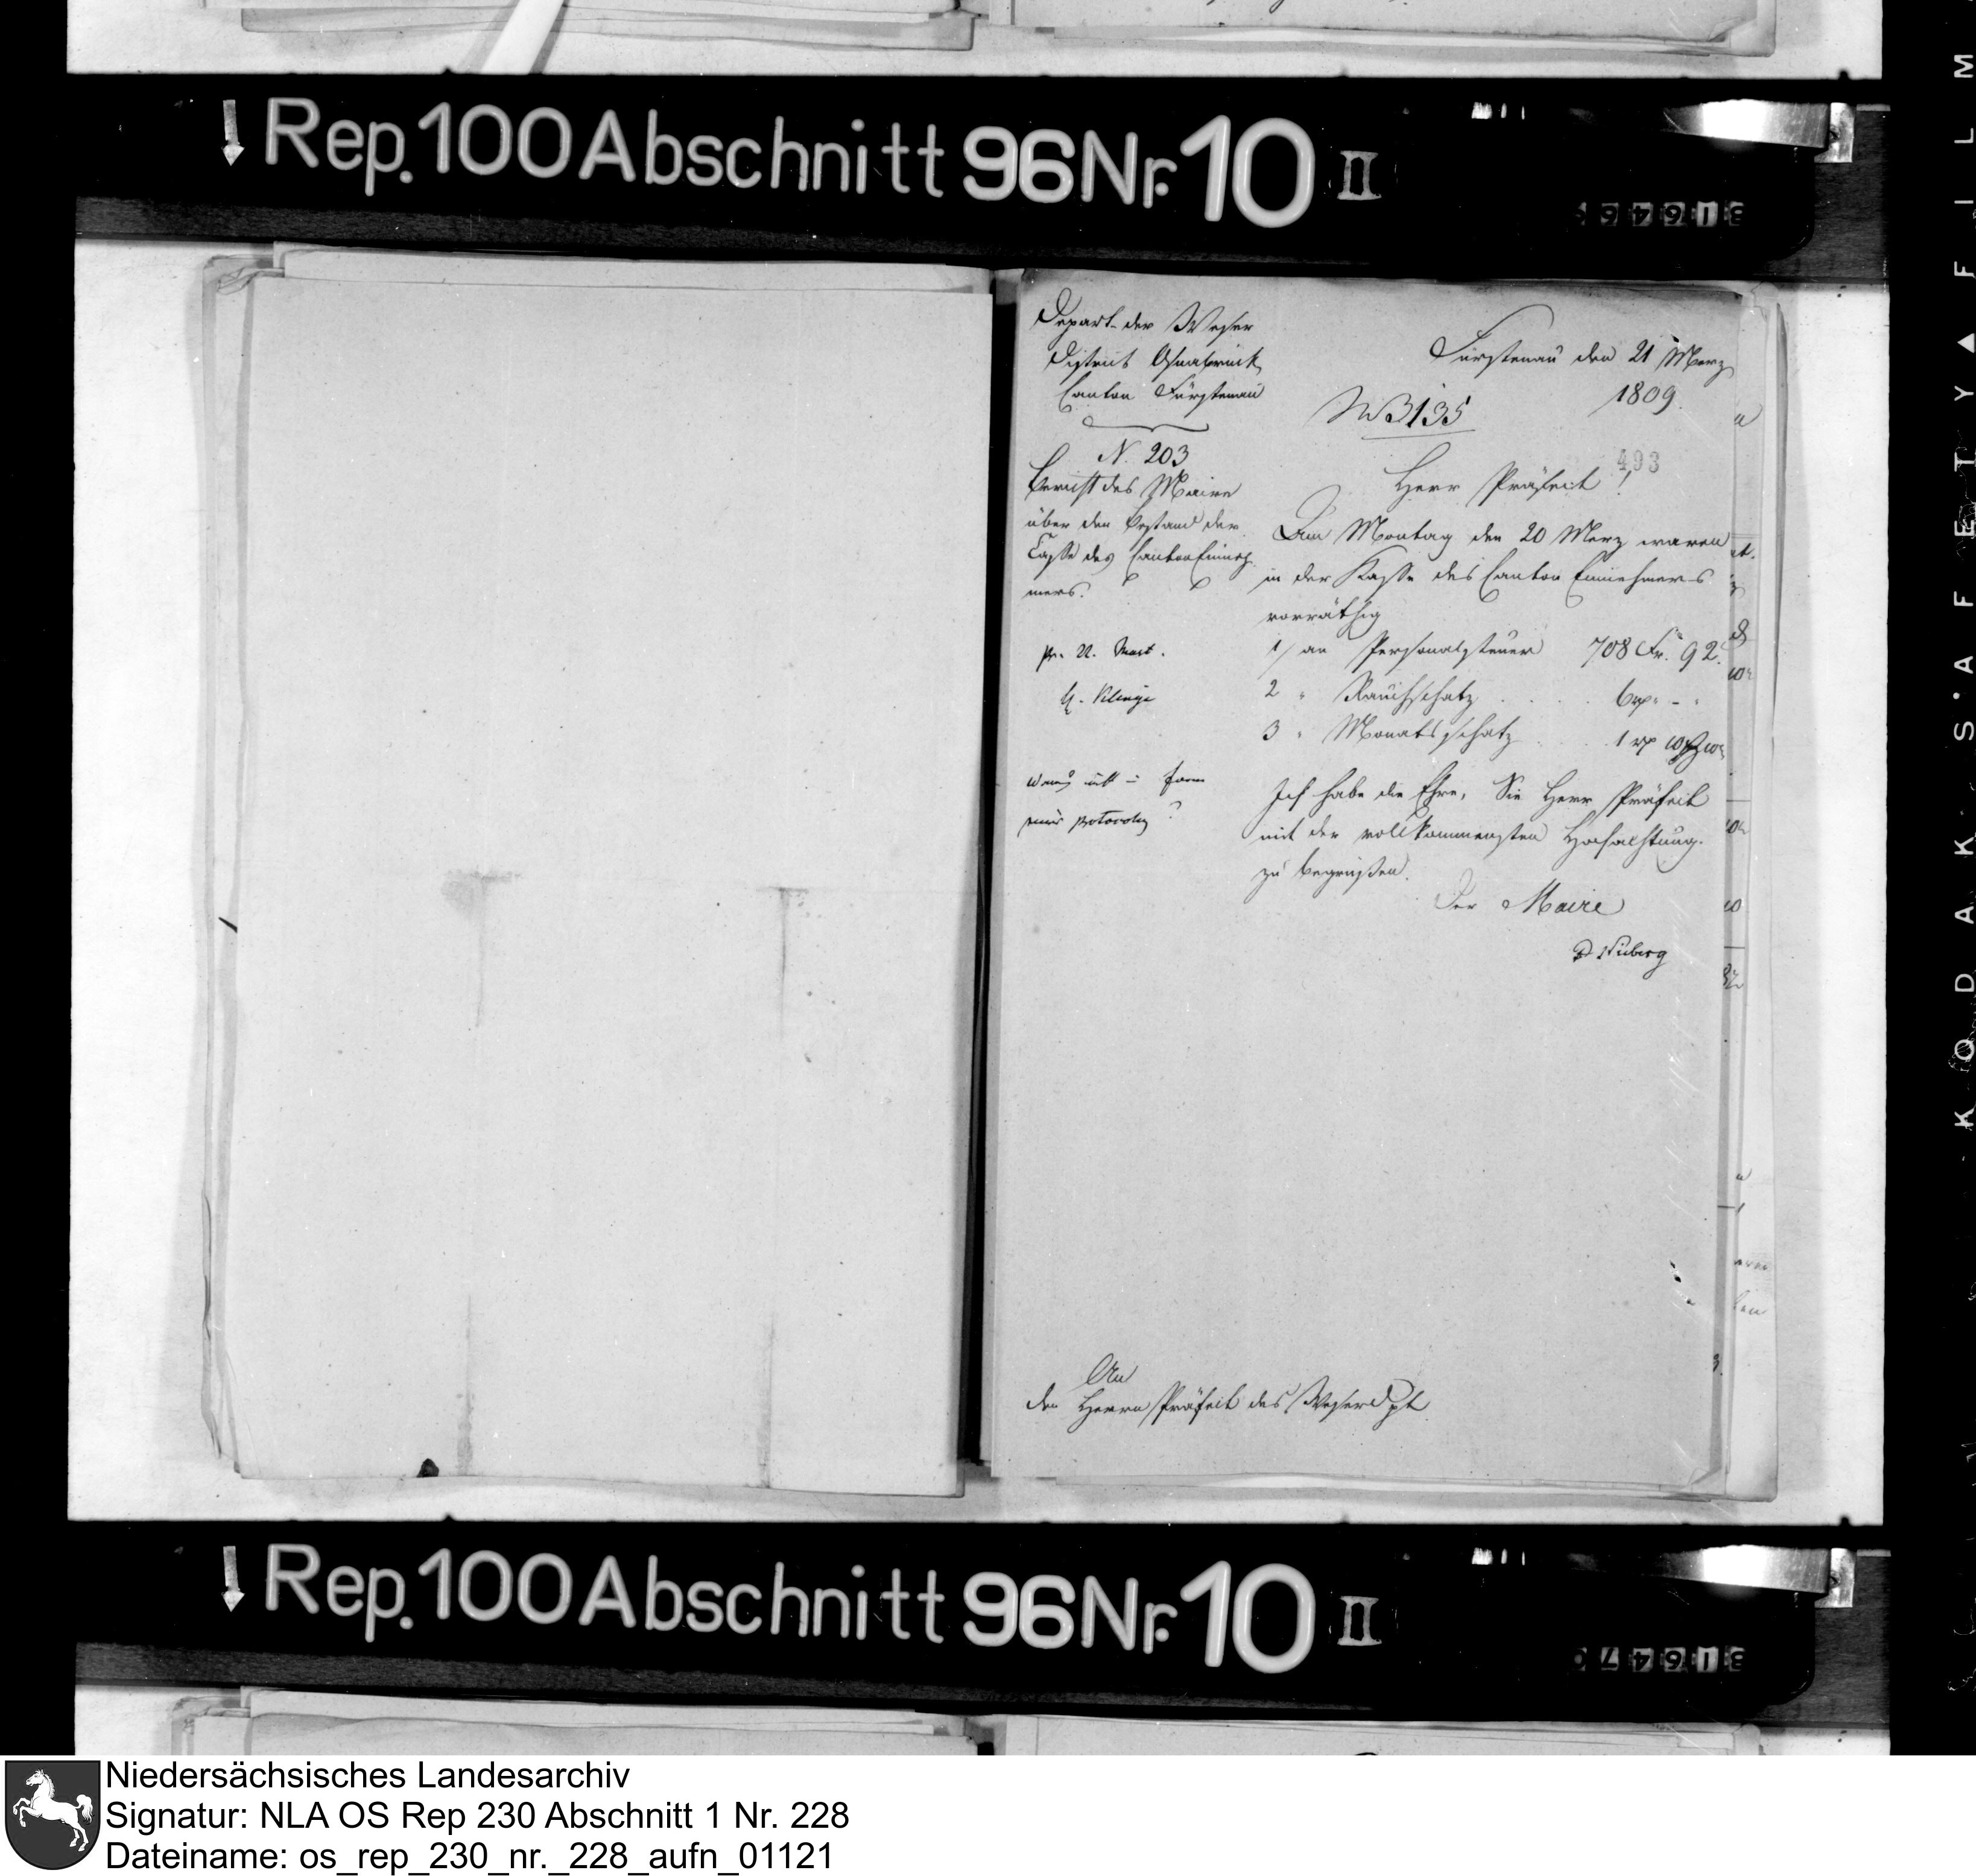 Rep. 100 Abschnitt 96 Nr. 10 II
Depart. der Weser
District Osnabrück
Canton Fürstenau
N. 203
Bericht des Maire
über den Bestand der
Casse des Canton Einneh
mers.
pr. 22. Mart.
Fürstenau den 21 Merz
1809
3135
493
Herr Präfect!
Am Montag den 20 Merz waren
in der Kasse des Canton Einnehmers
vorräthig
1/ an Personalsteuer 708 Fr. 92
2 " Rauchschatz 6
3 " Monatsschatz 1
Ich habe die Ehre, Sie Herr Präfect
mit der vollkommensten Hochachtung
zu begrüßen.
Der Maire
An
den Herrn Präfect des Weser Dpt
Rep. 100 Abschnitt 96 Nr. 10 II
KODAK SAFETY FILM
Niedersächsisches Landesarchiv
Signatur: NLA OS Rep 230 Abschnitt 1 Nr. 228
Dateiname: os_rep_230_nr._228_aufn_01121